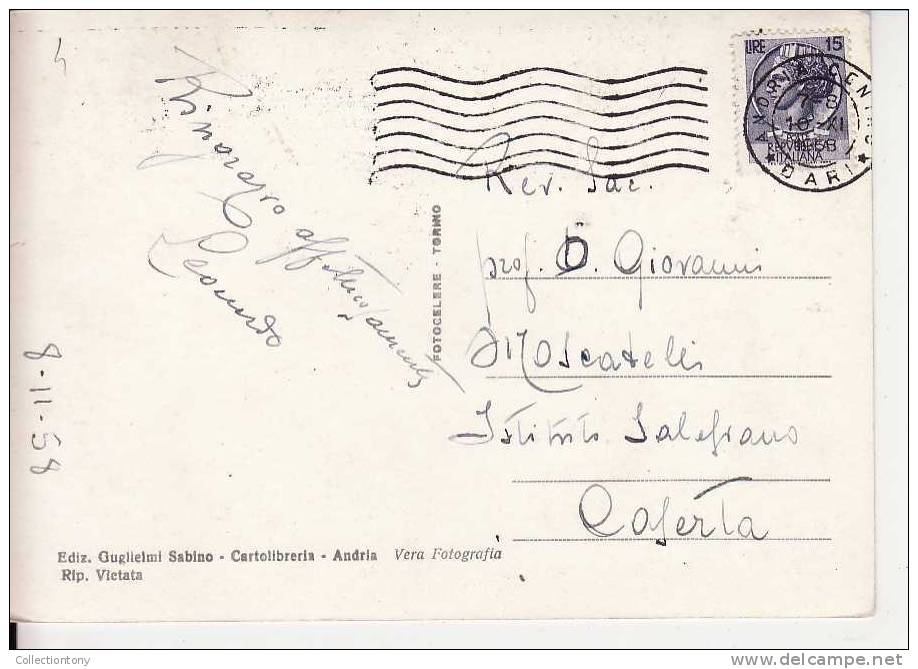 4
Ringrazio affettuosamente
Leonardo
8-11-58
FOTOCELERE - TORINO
LIRE 15
ITALIANA
ANDRIA CENTRO
7-8
10-XI
BARI
Rev. Sac.
prof. D. Giovanni
Moscatelli
Istituto Salesiano
Caserta
Ediz. Guglielmi Sabino - Cartolibreria - Andria Vera Fotografia
Rip. Vietata
Collectiontony
delcampe.net